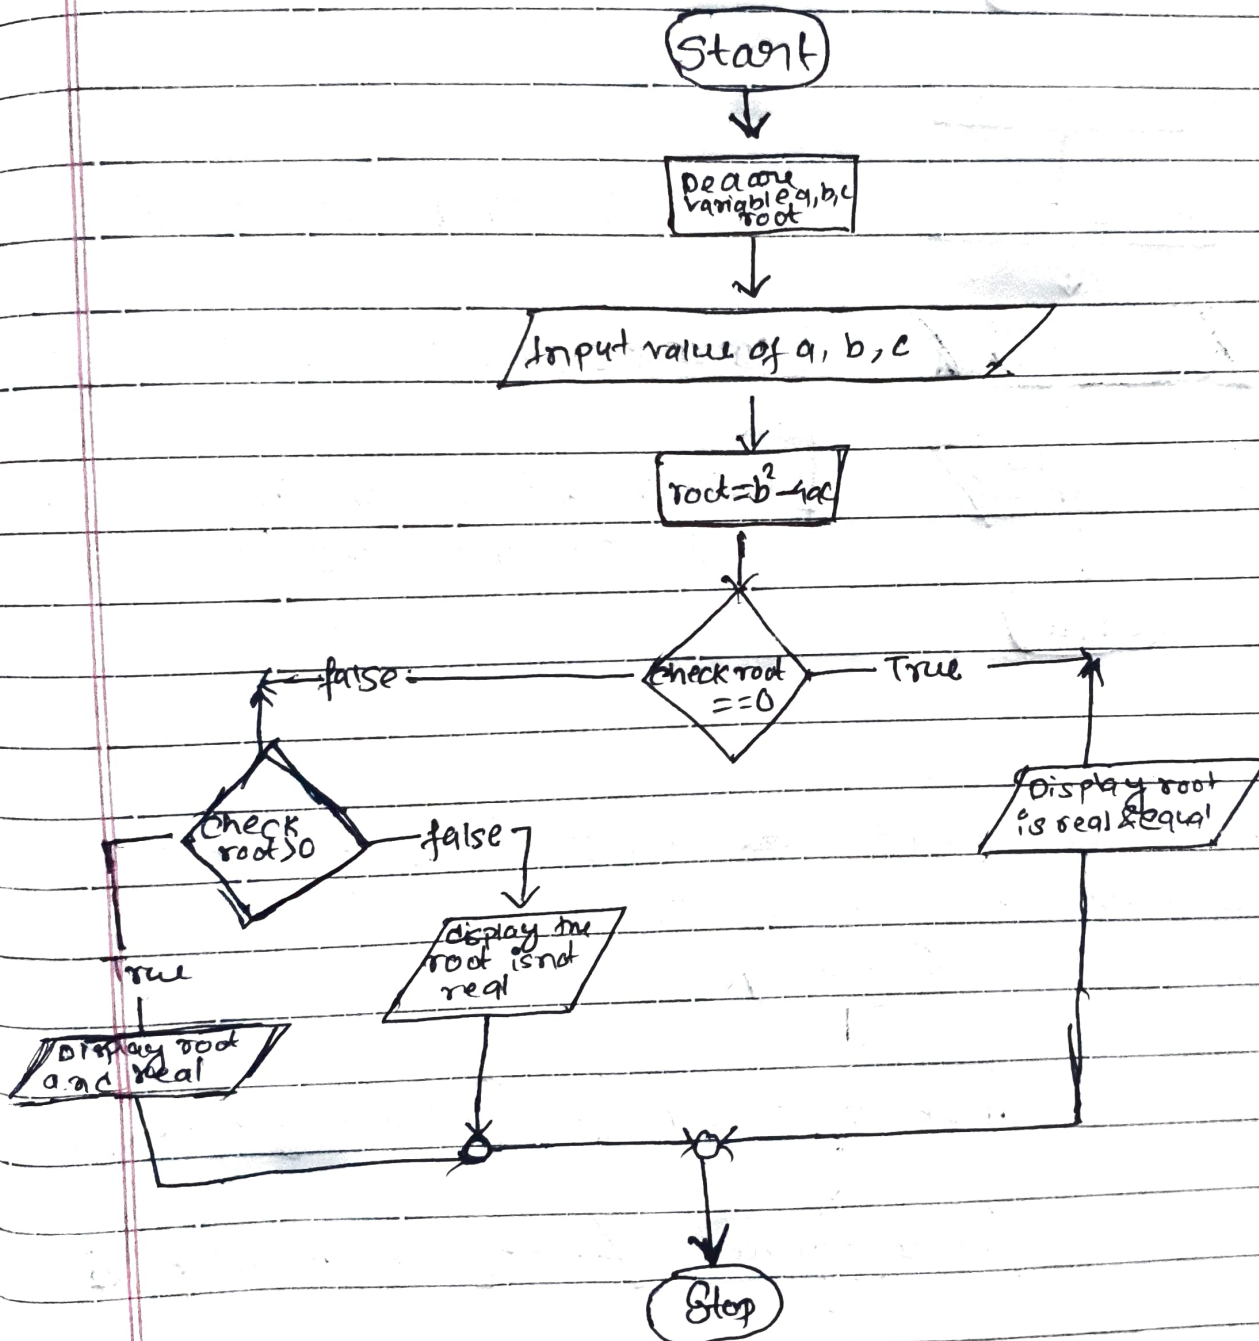 Start
Declare
variable a, b, c
root
Input value of a, b, c
root=b²-4ac
false
Check root
==0
True
Check
root>0
false
Display root
is real & equal
display the
root is not
real
True
Display root
and real
Stop